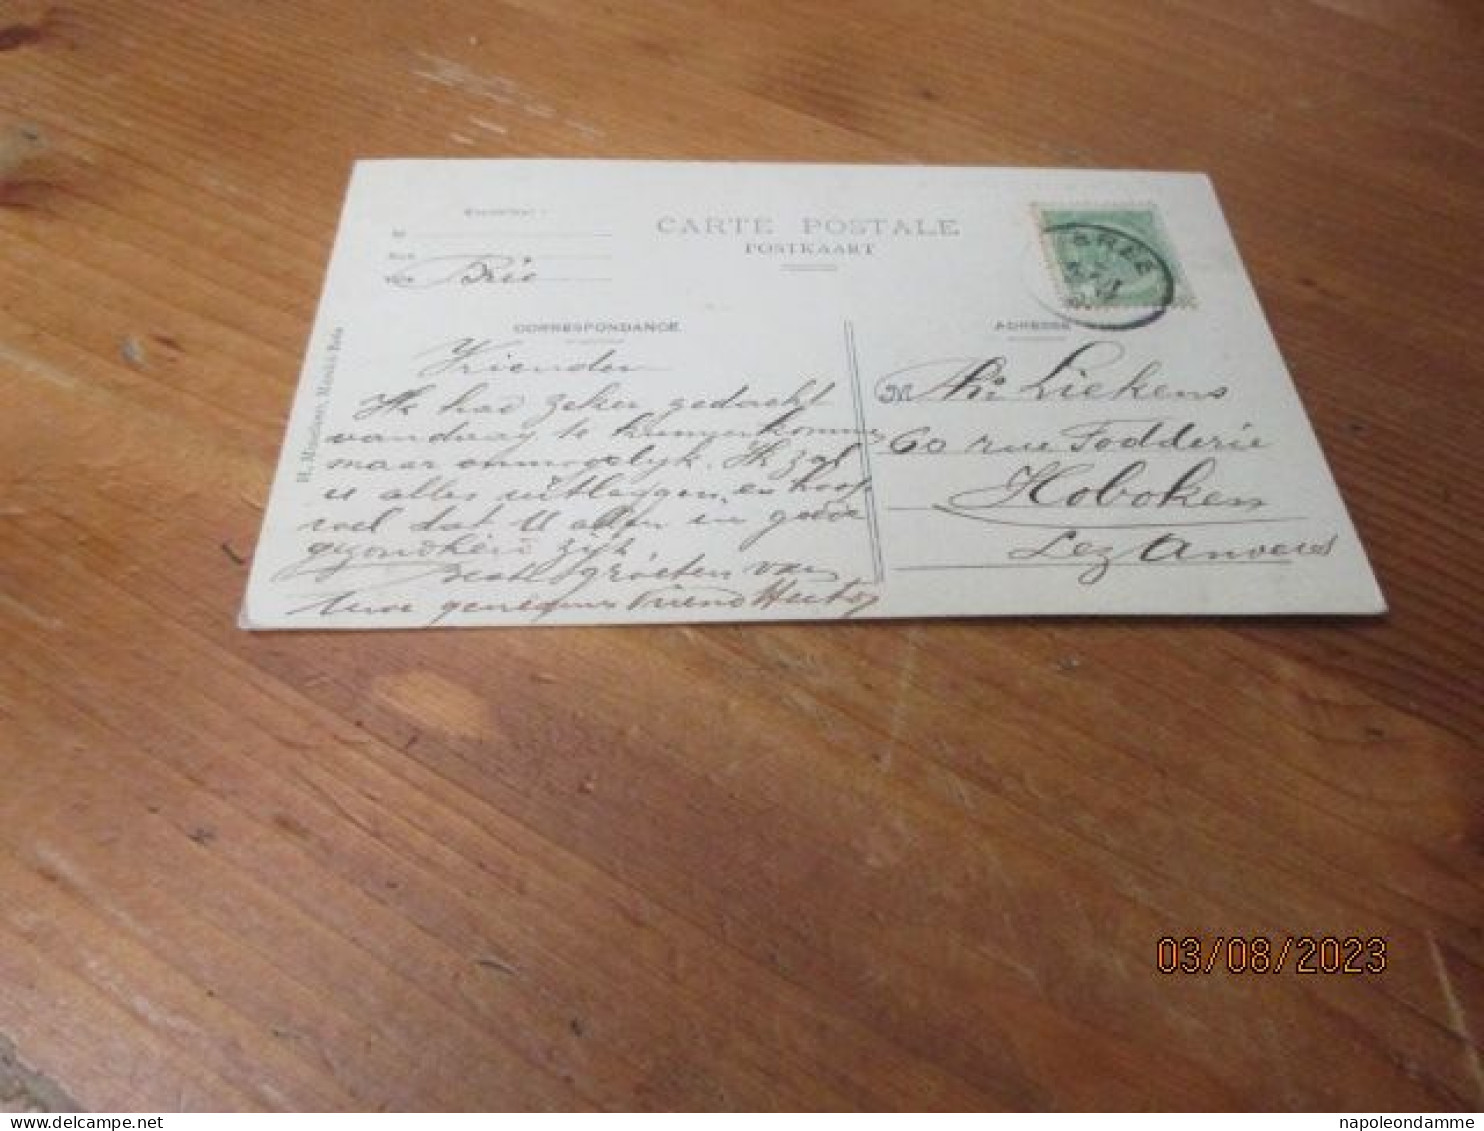 CARTE POSTALE
POSTKAART
BREE
Brée
CORRESPONDANCE
ADRESSE
Vrienden
Ik had zeker gedacht
vandaag te kunnen komme
maar onmogelijk. Ik zal
u alles uitleggen, en hoop
wel dat U allen in goede
gezondheid zijt
Beste groeten van
Uwe genegene Vriend Hector
M Liekens
60 rue Fodderie
Hoboken
Lez Anvers
03/08/2023
napoleondamme